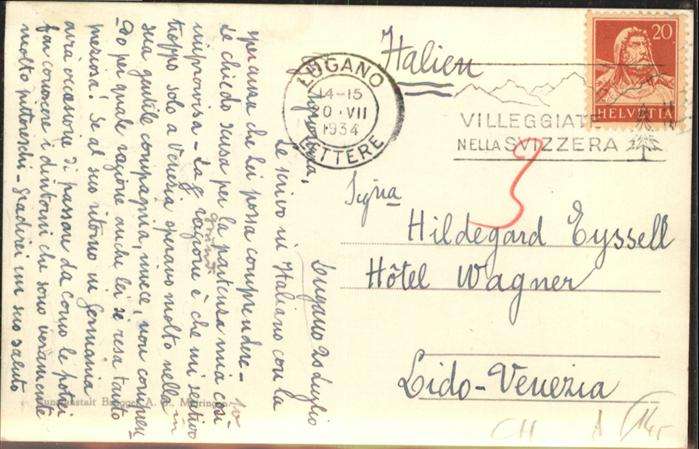 Lugano 28 luglio
Signorina,
Le scrivo in Italiano con la
speranza che lei possa comprendere-
Le chiedo scusa per la partenza mia così
improvvisa - La grande ragione è che mi sentivo
troppo solo a Venezia speravo molto nella
sua gentile compagnia, invece, non compren
do per quale ragione anche lei se resa tanto
preziosa! Se al suo ritorno in Germania
avrà occasione di passare da Como le potrei
far conoscere i dintorni che sono veramente
molto pittoreschi - Gradirei un suo saluto
Italien
LUGANO
14-15
VII
1934
LETTERE
VILLEGGIATE
NELLA SVIZZERA
20
HELVETIA
3
Signa
Hildegard Eyssell
Hôtel Wagner
Lido-Venezia
Kunstanstalt A. G. Meiringen